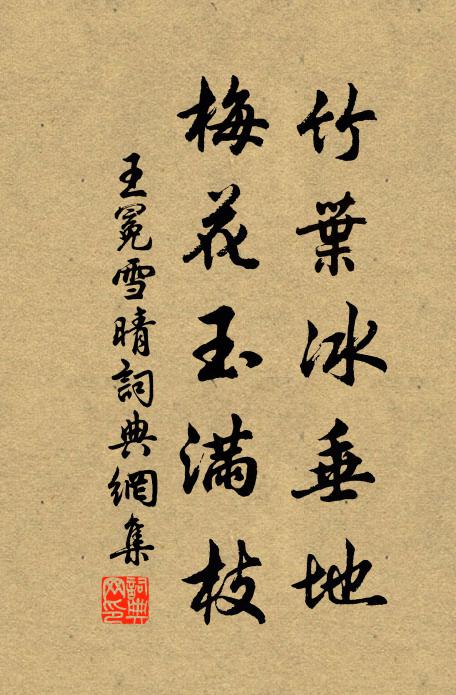 竹葉冰垂地
梅花玉滿枝
王冕雪晴詞典網集
詞典网印